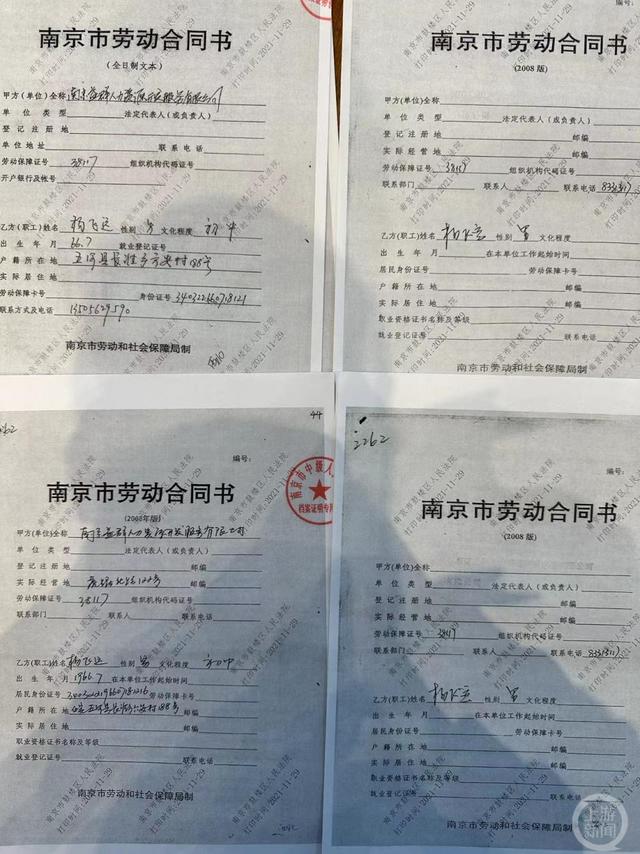 南京市劳动合同书
(全日制文本)
甲方(单位)全称
单位类型 法定代表人(或负责人)
登记注册地 邮编
单位地址 联系电话
劳动保障证号 38117 组织机构代码证号
开户银行及帐号
乙方(职工)姓名 杨飞运 性别 男 文化程度 初中
出生年月 66.7 就业登记证号
户籍所在地
实际居住地
劳动保障卡号 身份证号 340322660718121
联系方式及电话 13505629590
南京市劳动和社会保障局制
编号:
南京市劳动合同书
(2008 版)
甲方(单位)全称
单位类型 法定代表人(或负责人)
登记注册地 邮编
实际经营地 邮编
劳动保障证号 38117 组织机构代码证号
联系部门 联系人 联系电话
乙方(职工)姓名 性别 男 文化程度
出生年月 在本单位工作起始时间
居民身份证号 劳动保障卡号
户籍所在地 邮编
实际居住地 邮编
职业资格证书名称及等级
就业登记证号 联系电话
南京市劳动和社会保障局制
44
编号:
南京市劳动合同书
(2008年版)
甲方(单位)全称
单位类型 法定代表人(或负责人)
登记注册地 邮编
实际经营地 邮编
劳动保障证号 38117 组织机构代码证号
联系部门 联系人 联系电话
乙方(职工)姓名 杨飞运 性别 男 文化程度 初中
出生年月 1966.7 在本单位工作起始时间
居民身份证号 劳动保障卡号
户籍所在地 邮编
实际居住地 邮编
职业资格证书名称及等级
就业登记证号 联系电话
南京市劳动和社会保障局制
编号:
南京市劳动合同书
(2008 版)
甲方(单位)全称
单位类型 法定代表人(或负责人)
登记注册地 邮编
实际经营地 邮编
劳动保障证号 组织机构代码证号
联系部门 联系人 联系电话
乙方(职工)姓名 性别 男 文化程度
出生年月 在本单位工作起始时间
居民身份证号 劳动保障卡号
户籍所在地 邮编
实际居住地 邮编
职业资格证书名称及等级
就业登记证号 联系电话
南京市劳动和社会保障局制
南京市鼓楼区人民法院
打印时间:2021-11-29
上游新闻